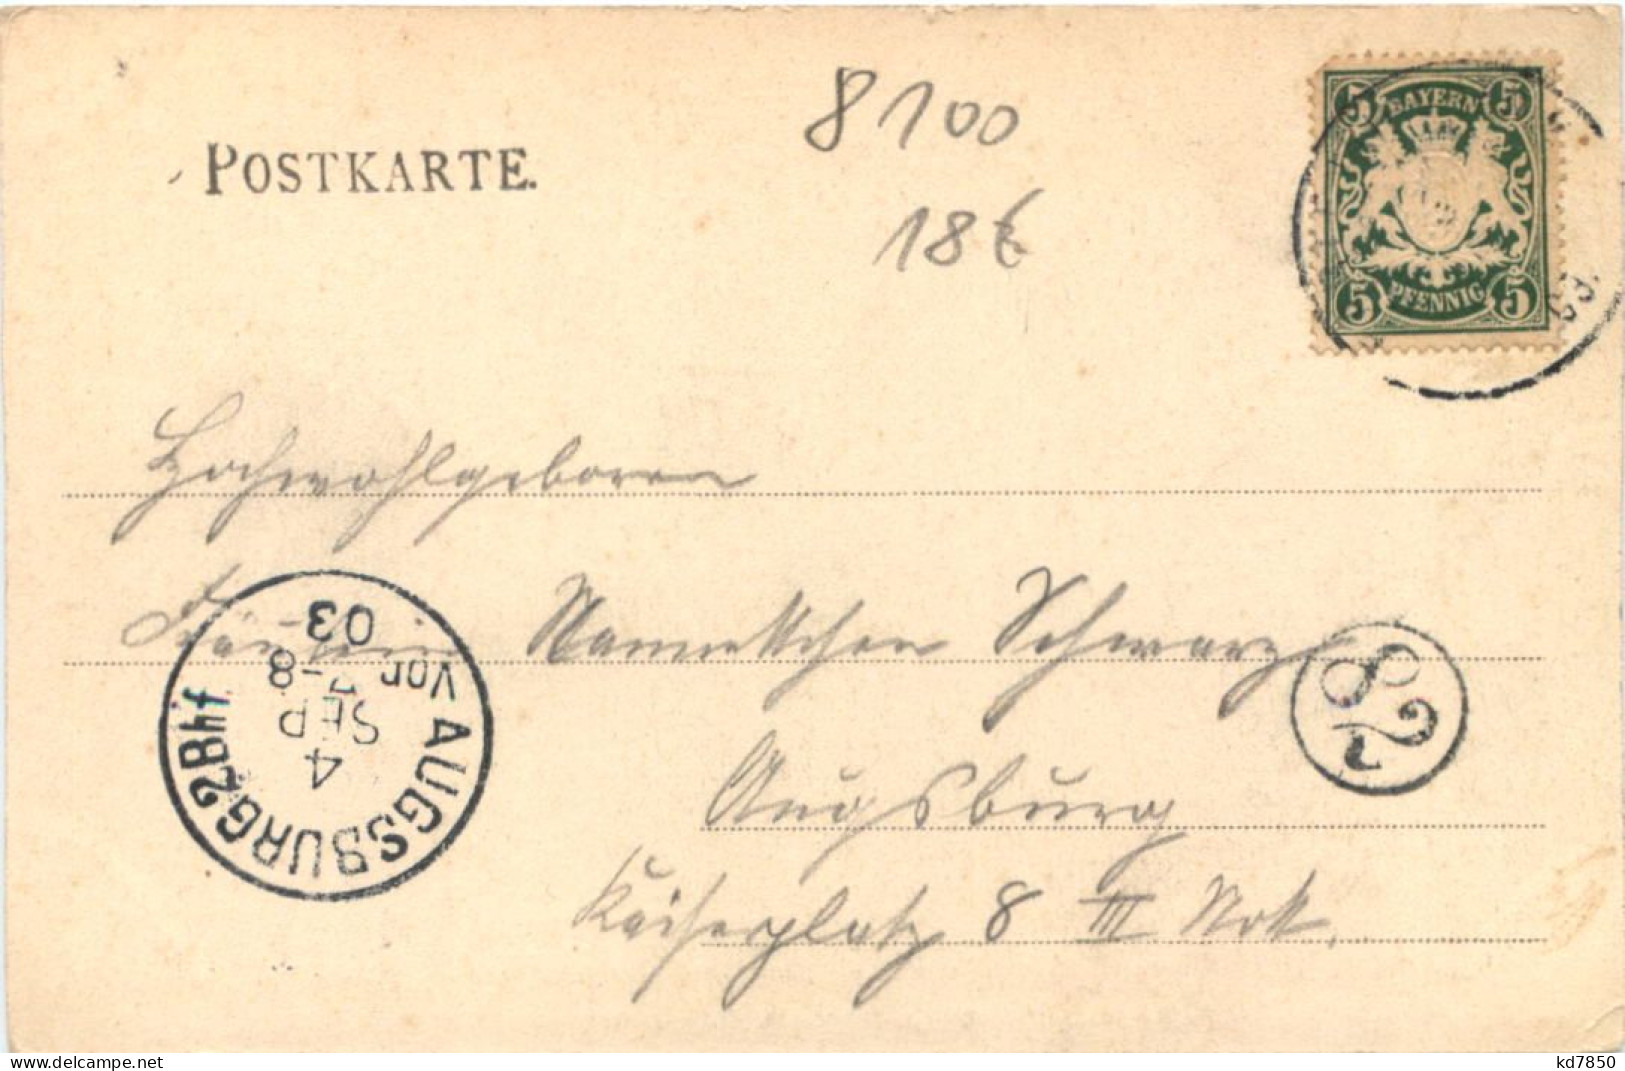 POSTKARTE.
8100
18€
5 BAYERN 5
5 PFENNIG 5
Hochwohlgeboren
Fräulein Nannettchen Schwarz
Augsburg
Kaiserplatz 8 III
AUGSBURG 2 Bhf
4
SEP
Vor 7-8
03
82
www.delcampe.net
kd7850